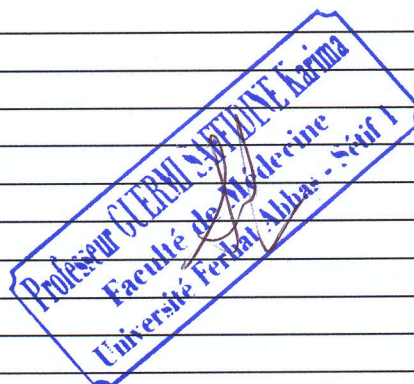 Professeur GUERMI SAFFIDINE Karima
Faculté de Médecine
Université Ferhat Abbas - Sétif 1